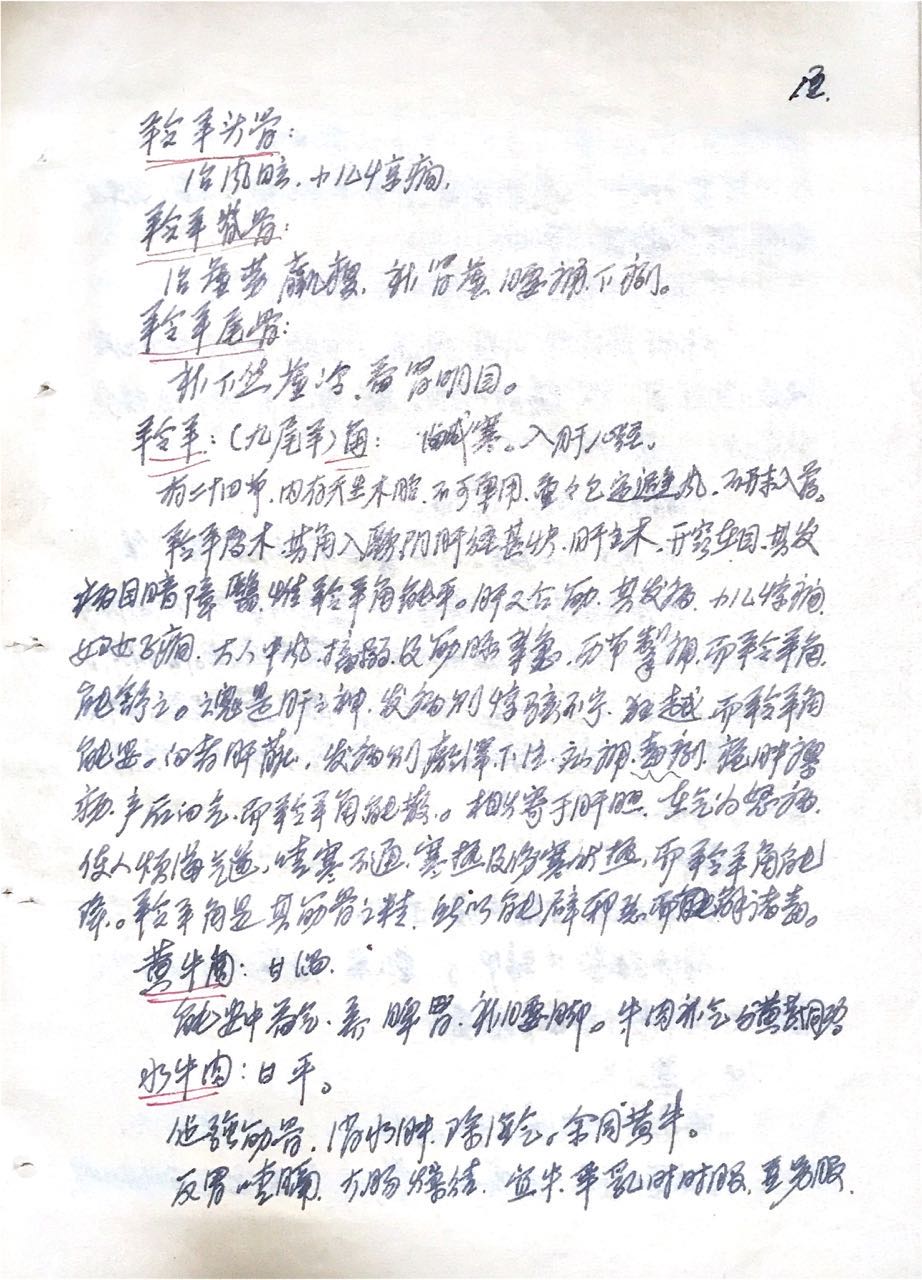 羚羊头骨：
治风眩，小儿惊痫。
羚羊脊骨：
治虚劳羸瘦，补肾虚，腰痛下痢。
羚羊尾骨：
补下焦虚冷，益肾明目。
羚羊：（九尾羊）角：咸寒。入肝心经。
有二十四节，内有天生木胎，不可单用，重重包定避风，不拆入药。
羚羊属木，其角入厥阴肝经甚快，肝主木，开窍在目，其发
病目暗障翳，惟羚羊角能平。肝又合筋，其发病，小儿惊痫
妇女子痫，大人中风，搐搦，及筋脉挛急，历节掣痛，而羚羊角
能舒之。魂是肝之神，发病则惊骇不宁，狂越，而羚羊角
能安。血者肝藏，发病则瘀滞下注，疝痛，毒痢，疮肿瘰
疬，产后血气，而羚羊角能散。相火寄于肝胆，在气为怒，病
使人烦满气逆，噎塞不通，寒热及伤寒伏热，而羚羊角能
降。羚羊角是其筋骨之精，所以能辟邪恶而能解诸毒。
黄牛肉：甘温。
能安中益气，养脾胃，补腰脚。牛肉补气与黄芪同路
水牛肉：甘平。
健强筋骨，消水肿，除湿气，余同黄牛。
反胃噎膈，大肠燥结，宜牛羊乳时时服，